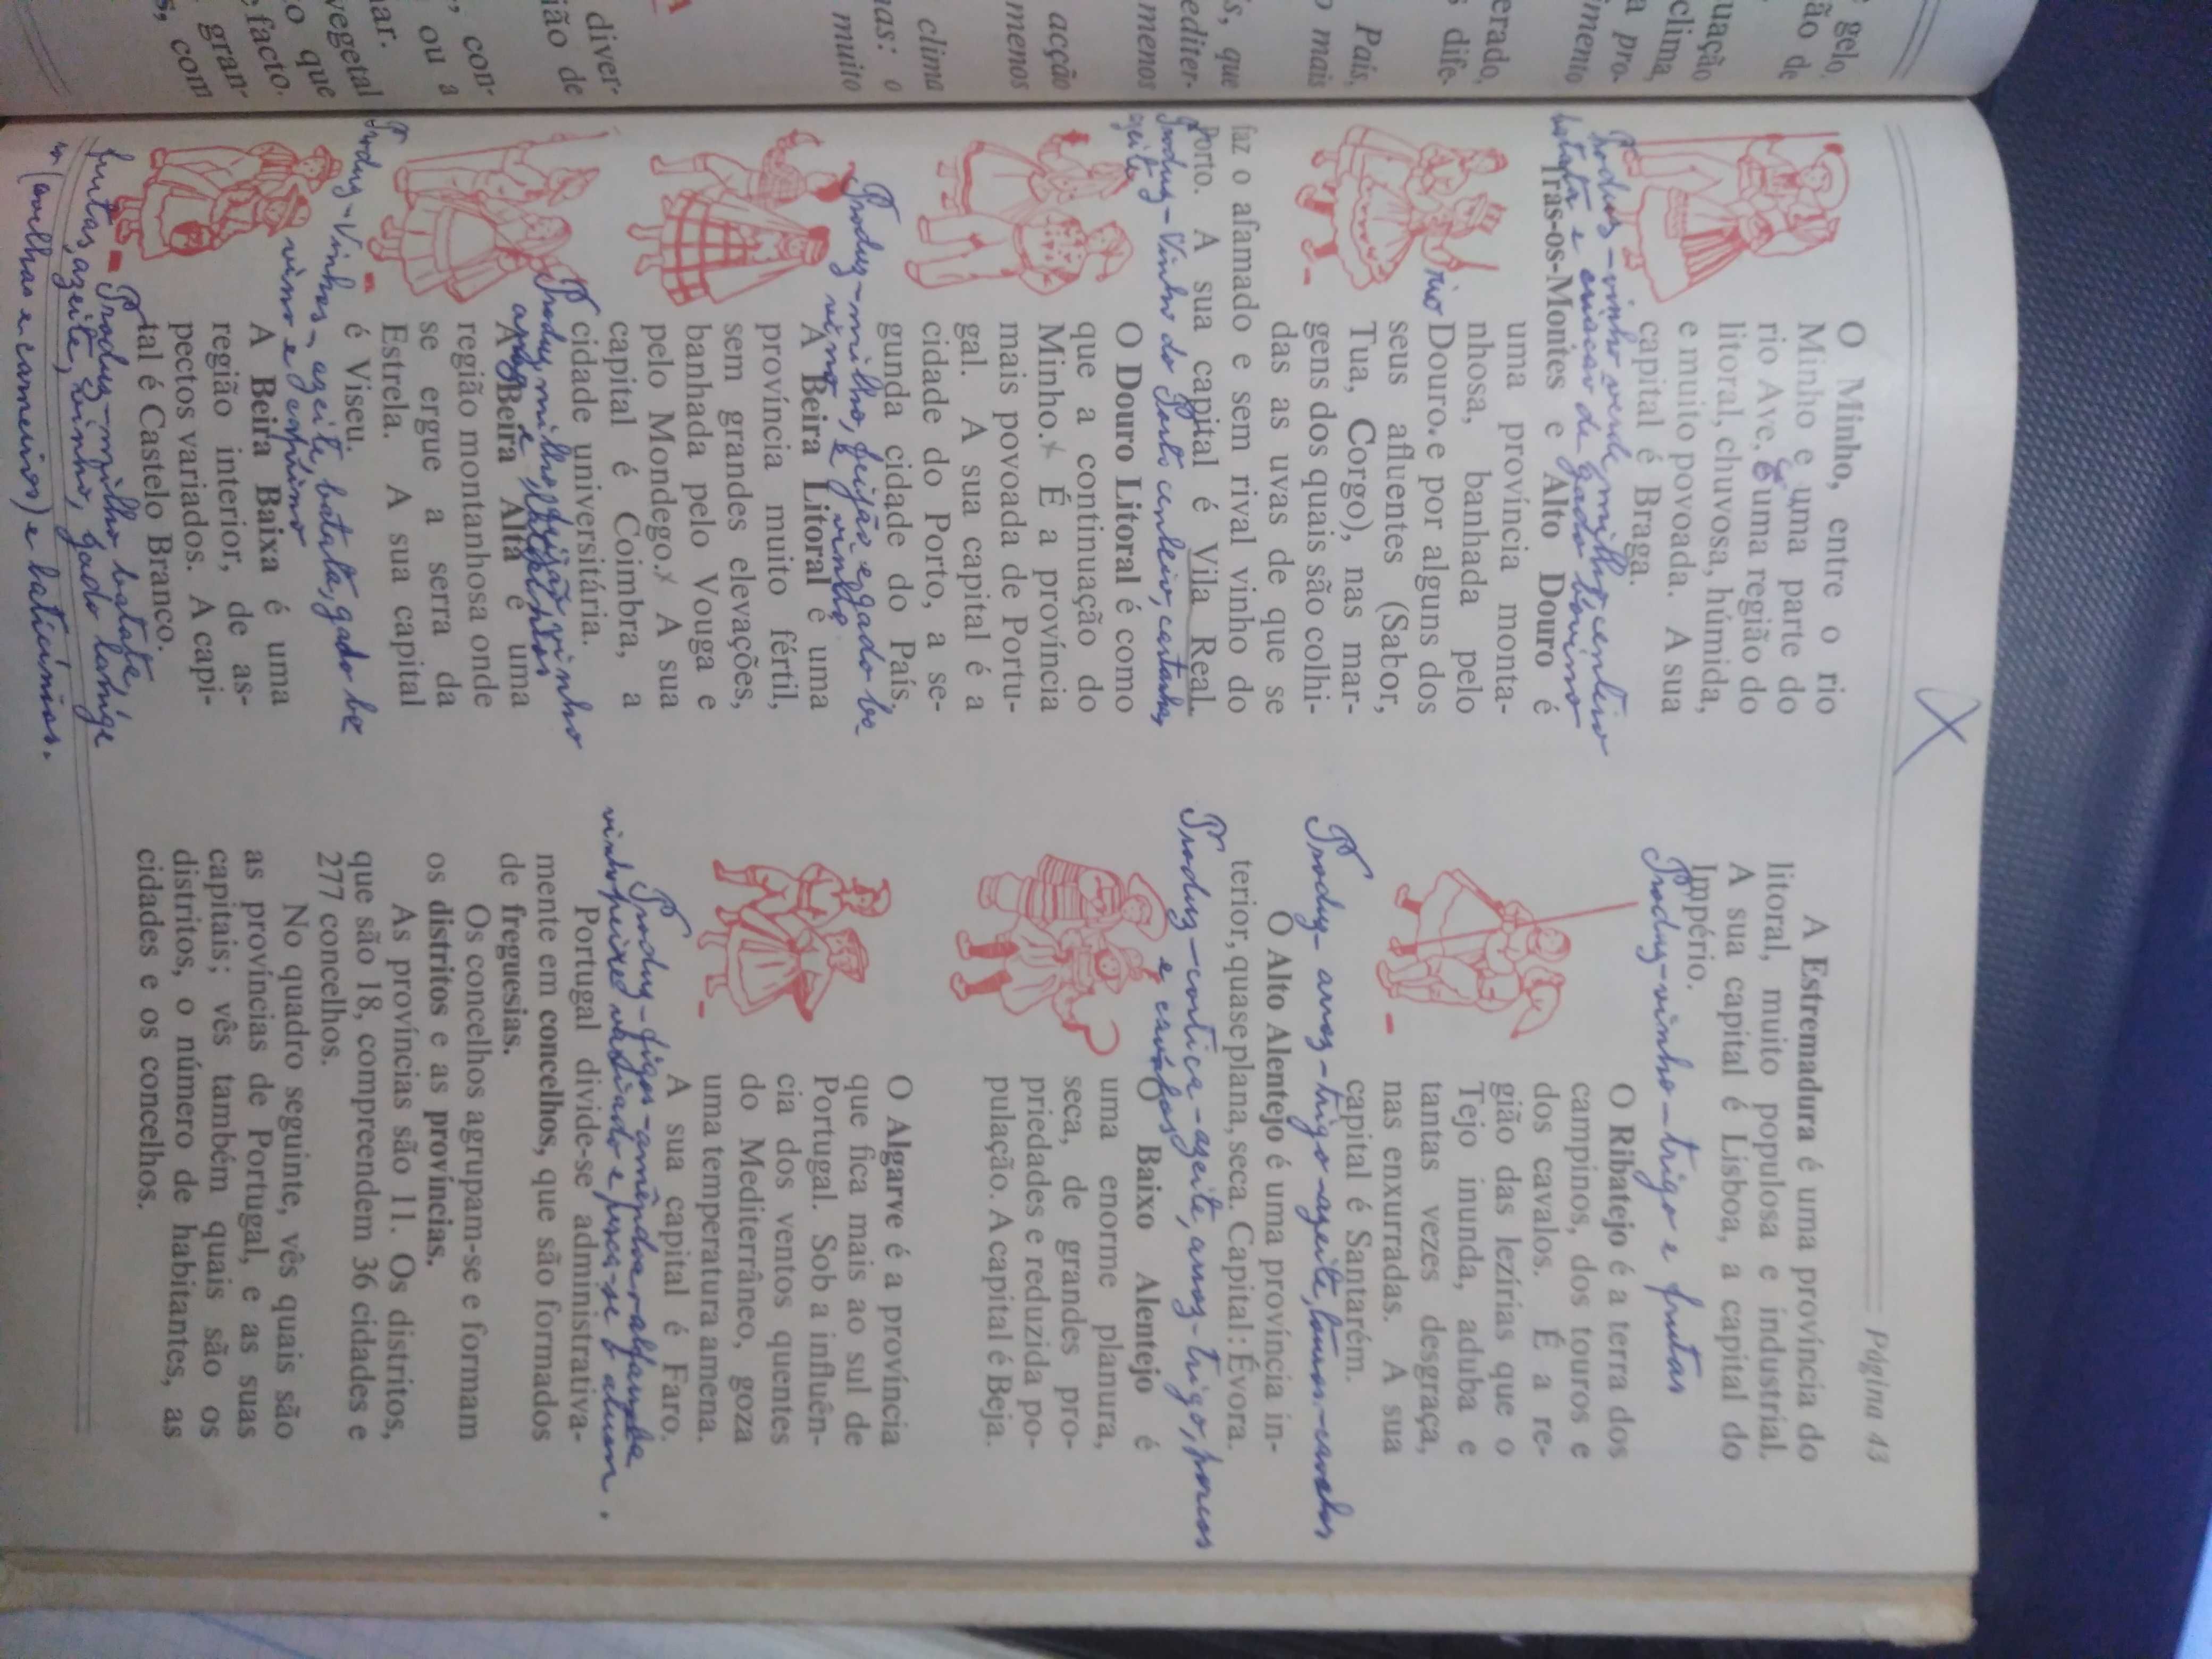 Página 43
O Minho, entre o rio
Minho e uma parte do
rio Ave, é uma região do
litoral, chuvosa, húmida,
e muito povoada. A sua
capital é Braga.
Produz - vinho verde, milho, centeio
batata e criação de gado bovino
Trás-os-Montes e Alto Douro é
uma província monta-
nhosa, banhada pelo
rio Douro e por alguns dos
seus afluentes (Sabor,
Tua, Corgo), nas mar-
gens dos quais são colhi-
das as uvas de que se
faz o afamado e sem rival vinho do
Porto. A sua capital é Vila Real.
Produz - Vinho do Porto, centeio, castanha,
azeite
O Douro Litoral é como
que a continuação do
Minho. É a província
mais povoada de Portu-
gal. A sua capital é a
cidade do Porto, a se-
gunda cidade do País.
Produz - milho, feijão e gado bo-
vino e vinho
A Beira Litoral é uma
província muito fértil,
sem grandes elevações,
banhada pelo Vouga e
pelo Mondego. A sua
capital é Coimbra, a
cidade universitária.
Produz milho, feijão, vinho
arroz e
A Beira Alta é uma
região montanhosa onde
se ergue a serra da
Estrela. A sua capital
é Viseu.
Produz - Vinhos, azeite, batata, gado bo
vino e caprino
A Beira Baixa é uma
região interior, de as-
pectos variados. A capi-
tal é Castelo Branco.
Produz - milho batata,
frutas, azeite, vinho, gado laníge
ro (ovelhas e carneiros) e laticínios.
A Estremadura é uma província do
litoral, muito populosa e industrial.
A sua capital é Lisboa, a capital do
Império.
Produz - vinho - trigo e frutas
O Ribatejo é a terra dos
campinos, dos touros e
dos cavalos. É a re-
gião das lezírias que o
Tejo inunda, aduba e
tantas vezes desgraça,
nas enxurradas. A sua
capital é Santarém.
Produz - arroz - trigo - azeite, touros - cavalos
O Alto Alentejo é uma província in-
terior, quase plana, seca. Capital: Évora.
Produz - cortiça - azeite, arroz - trigo, porcos
e
O Baixo Alentejo é
uma enorme planura,
seca, de grandes pro-
priedades e reduzida po-
pulação. A capital é Beja.
O Algarve é a província
que fica mais ao sul de
Portugal. Sob a influên-
cia dos ventos quentes
do Mediterrâneo, goza
uma temperatura amena.
A sua capital é Faro.
Produz - figos - amêndoa - alfarroba
vinho e pesca-se o atum.
Portugal divide-se administrativa-
mente em concelhos, que são formados
de freguesias.
Os concelhos agrupam-se e formam
os distritos e as províncias.
As províncias são 11. Os distritos,
que são 18, compreendem 36 cidades e
277 concelhos.
No quadro seguinte, vês quais são
as províncias de Portugal, e as suas
capitais; vês também quais são os
distritos, o número de habitantes, as
cidades e os concelhos.